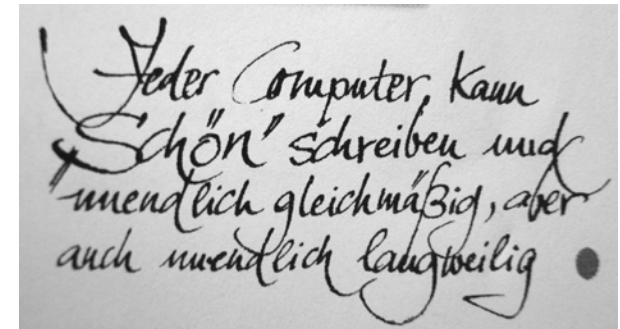 Jeder Computer kann
"Schön" schreiben und
unendlich gleichmäßig, aber
auch unendlich langweilig